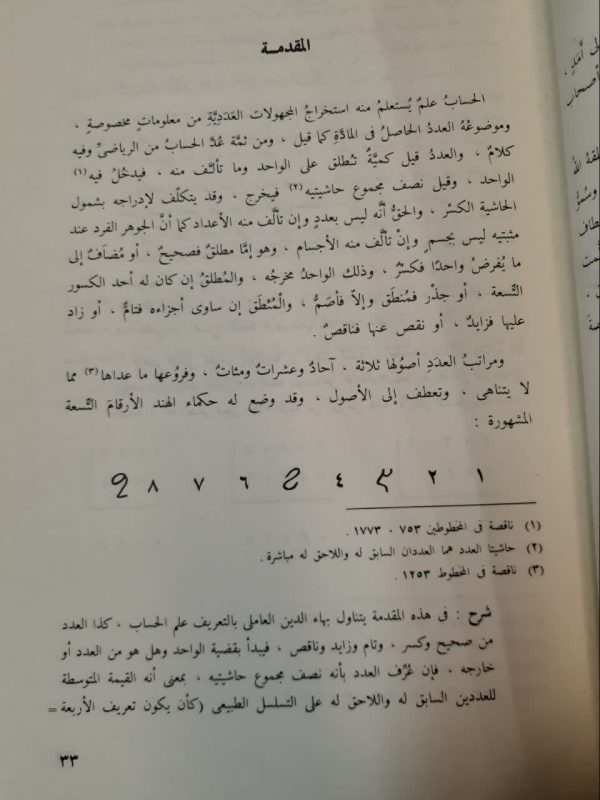 المقدمــة
الحسابُ علمٌ يُستعلمُ منه استخراجُ المجهولات العَدَدِيَّةِ من معلوماتٍ مخصوصةٍ ،
وموضوعُهُ العددُ الحاصلُ فى المادَّةِ كما قيل ، ومن ثمَّة عُدَّ الحسابُ من الرياضىِّ وفيه
كلامٌ ، والعددُ قيل كميَّةٌ تُطلق على الواحد وما تألَّف منه ، فيدخُلُ فيه (١)
الواحد ، وقيل نصف مجموع حاشيتيه (٢) فيخرج ، وقد يتكلّف لإدراجه بشمول
الحاشية الكسْر ، والحقُّ أنَّه ليس بعددٍ وإن تألَّف منه الأعداد كما أنَّ الجوهر الفرد عند
مثبتيه ليس بجسمٍ وإنْ تألَّف منه الأجسام ، وهو إمَّا مطلقٌ فصحيحٌ ، أو مُضَافٌ إلى
ما يُفرضُ واحدًا فكسْرٌ ، وذلك الواحدُ مخرجُه ، والمُطلقُ إن كان له أحد الكسور
التِّسعة ، أو جذْر فمُنطَق وإلاّ فأصَمُّ ، والْمُنْطَق إن ساوى أجزاءه فتامٌّ ، أو زاد
عليها فزايدٌ ، أو نقص عنها فناقصٌ .
ومراتبُ العدَدِ أصوُلها ثلاثة ، آحادٌ وعشراتٌ ومئاتٌ ، وفروُعها ما عداها (٣) مما
لا يتناهى ، وتعطف إلى الأصول ، وقد وضع له حكماء الهند الأرقامَ التِّسعة
المشهورة :
١ ٢ ٣ ٤ ٦ ٧ ٨ ٩
(١) ناقصة فى المخطوطين ٧٥٣ ، ١٧٧٣ .
(٢) حاشيتا العدد هما العددان السابق له واللاحق له مباشرة .
(٣) ناقصة فى المخطوط ١٢٥٣ .
شرح : فى هذه المقدمة يتناول بهاء الدين العاملى بالتعريف علم الحساب ، كذا العدد
من صحيح وكسر ، وتام وزايد وناقص ، فيبدأ بقضية الواحد وهل هو من العدد أو
خارجه ، فإن عُرِّف العدد بأنه نصف مجموع حاشيتيه ، بمعنى أنه القيمة المتوسطة
للعددين السابق له واللاحق له على التسلسل الطبيعى (كأن يكون تعريف الأربعة =
٣٣